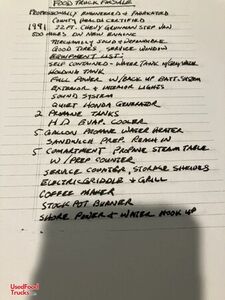 FOOD TRUCK FOR SALE
PROFESSIONALLY ENGINEERED & FABRICATED
COUNTY HEALTH CERTIFIED
1991 22FT. CHEVY GRUMMAN STEP VAN
500 MILES ON NEW ENGINE
MECHANICALLY SOUND & DEPENDABLE
GOOD TIRES, SERVICE WINDOW
EQUIPMENT LIST:
SELF CONTAINED - WATER TANK W/GREYWATER
HOLDING TANK
FULL POWER W/BACK UP BATT. SYSTEM
EXTERIOR & INTERIOR LIGHTS
SOUND SYSTEM
QUIET HONDA GENERATOR
2 PROPANE TANKS
H.D. EVAP. COOLER
5 GALLON PROPANE WATER HEATER
SANDWICH PREP. REACH IN
5 COMPARTMENT PROPANE STEAM TABLE
W/ PREP COUNTER
SERVICE COUNTER, STORAGE SHELVES
ELECTRIC GRIDDLE & GRILL
COFFEE MAKER
STOCK POT BURNER
SHORE POWER & WATER HOOK UP
UsedFood
Trucks